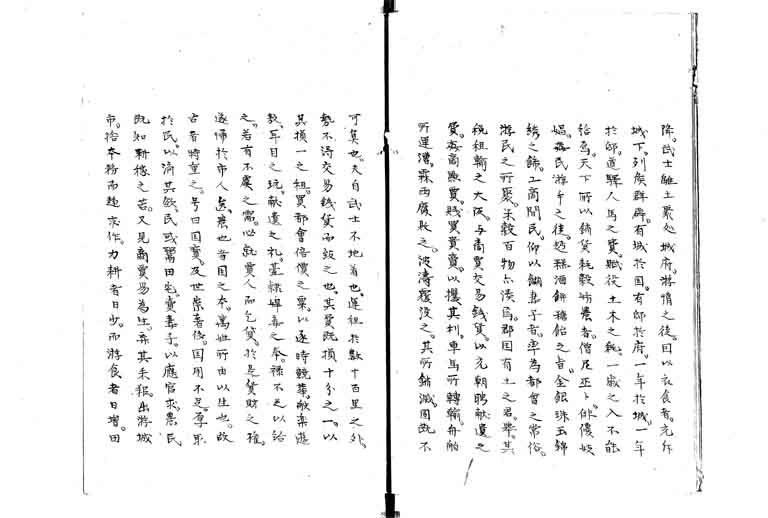 隊。武士離土聚处城府。游惰之徒。因以衣食者。充斥
城下。列侯群辟。有城於国。有邸於府。一年於城。一年
於邸。道驛人馬之費。賦役土木之税。一歳之入不能
給焉。天下所以錢貨耗穀姉農者。僧尼巫卜。俳優妓
娼。姦民游手之徒。麪糅酒餅糖飴之旨。金銀珠玉錦
綉之餙。工商間民。仰以餬妻子者。率為都會之常俗。
游民之所聚。米穀百物亦湊焉。郡国有土之君。举其
税租輸之大阪。与商賈交易錢貨。以充朝聘献遺之
費。姦商點賈。賤買貴賣。以攫其利。車馬所轉輸。舟舶
所運漕。霖雨腐敗之。波濤覆没之。其所銷減。固既不
可算也。夫自武士不地着也。運租於数十百里之外。
勢不得交易錢貨而致之也。其費既損十分之一。以
其損一之租。買都會倍價之粟。以逐時競華。歌楽遊
敖。耳目之玩。献遺之礼。臺隷婢妾之奉。禄不足以給
之。若有不虞之需。必就賈人而乞貸。於是貨財之権。
遂帰於市人。農也者国之本。萬姓所由以生也。故
古者特重之。号曰国寳。及世崇奢侈。国用不足。厚取
於民。以済其欲。民或鬻田宅賣妻子。以應官求。農民
既知耕稼之苦。又見商賈易為生。弃其耒耜。出游城
市。捨本務而趨末作。力耕者日少。而游食者日增。田